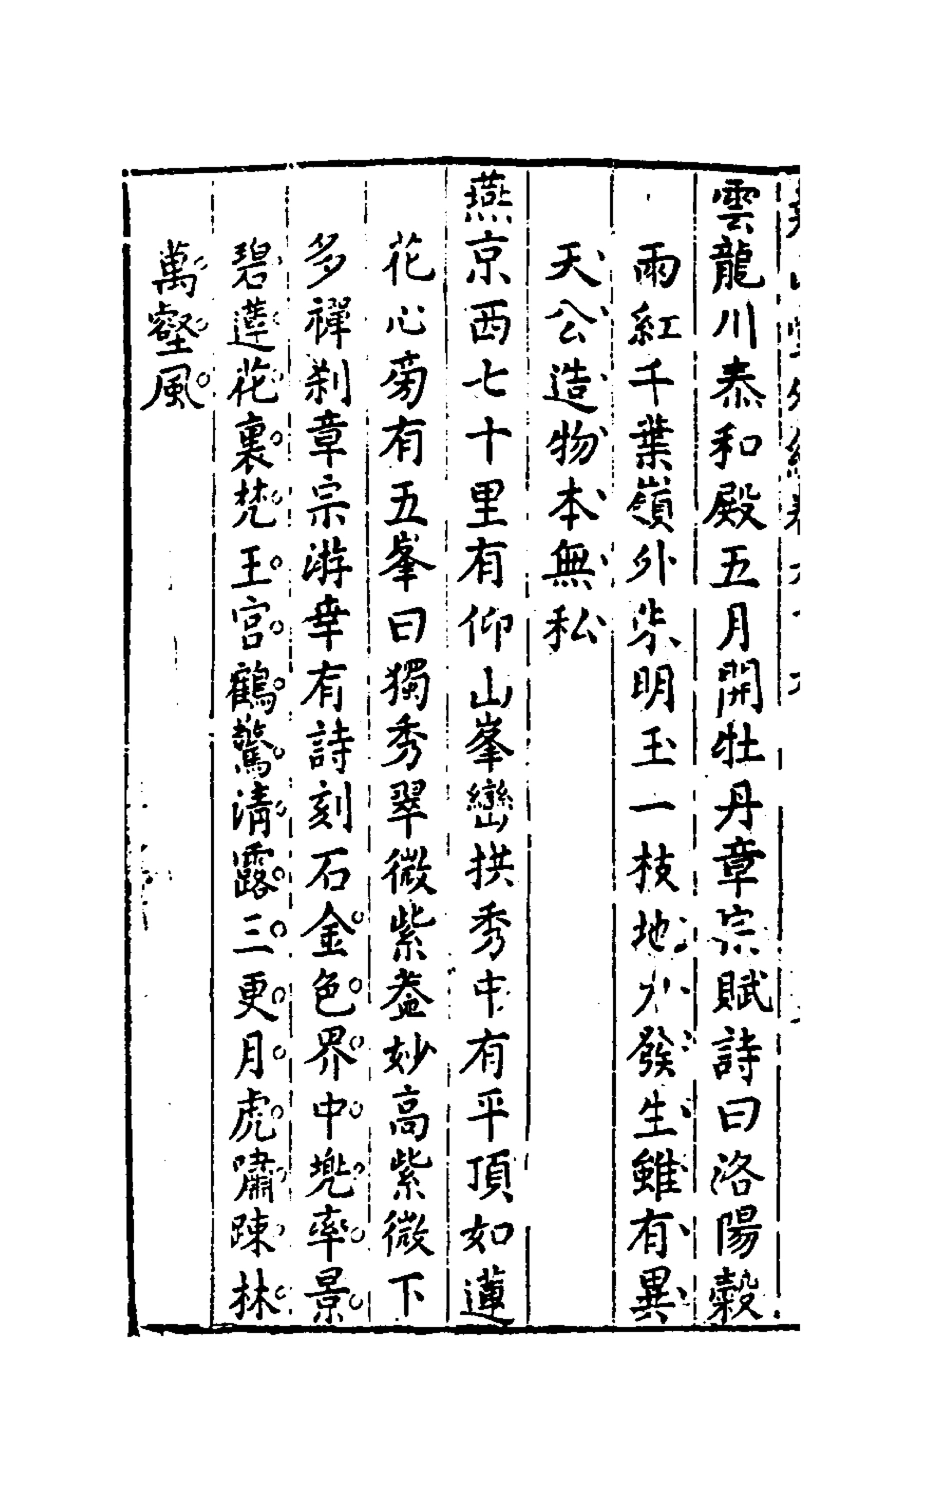 雲龍川泰和殿五月開牡丹章宗賦詩曰洛陽穀
雨紅千葉嶺外朱明玉一枝地力發生雖有異
天公造物本無私
燕京西七十里有仰山峯巒拱秀中有平頂如蓮
花心旁有五峯曰獨秀翠微紫盖妙高紫微下
多禪刹章宗游幸有詩刻石金色界中兠率景
碧蓮花裏梵王宮鶴驚清露三更月虎嘯踈林
萬壑風